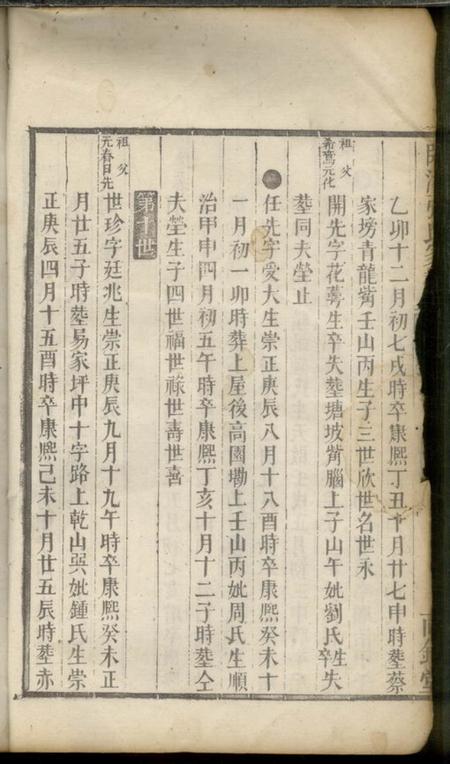 乙卯十二月初七戌時卒康熙丁丑十月廿七申時塟蔡
家塝青龍嘴壬山丙生子三世欣世名世永
祖父
希鸞元化
開先字花蕚生卒失塟塘坡嘴腦上子山午妣劉氏生卒失
塟同夫塋止
任先字愛大生崇正庚辰八月十八酉時卒康熙癸未十
一月初一卯時葬上屋後高園墈上壬山丙妣周氏生順
治甲申四月初五午時卒康熙丁亥十月十二子時塟仝
夫塋生子四世福世祿世壽世喜
第十世
祖父
元春日先
世珍字廷兆生崇正庚辰九月十九午時卒康熙癸未正
月廿五子時塟易家坪中十字路上乾山巽妣鍾氏生崇
正庚辰四月十五酉時卒康熙己未十月廿五辰時塟赤